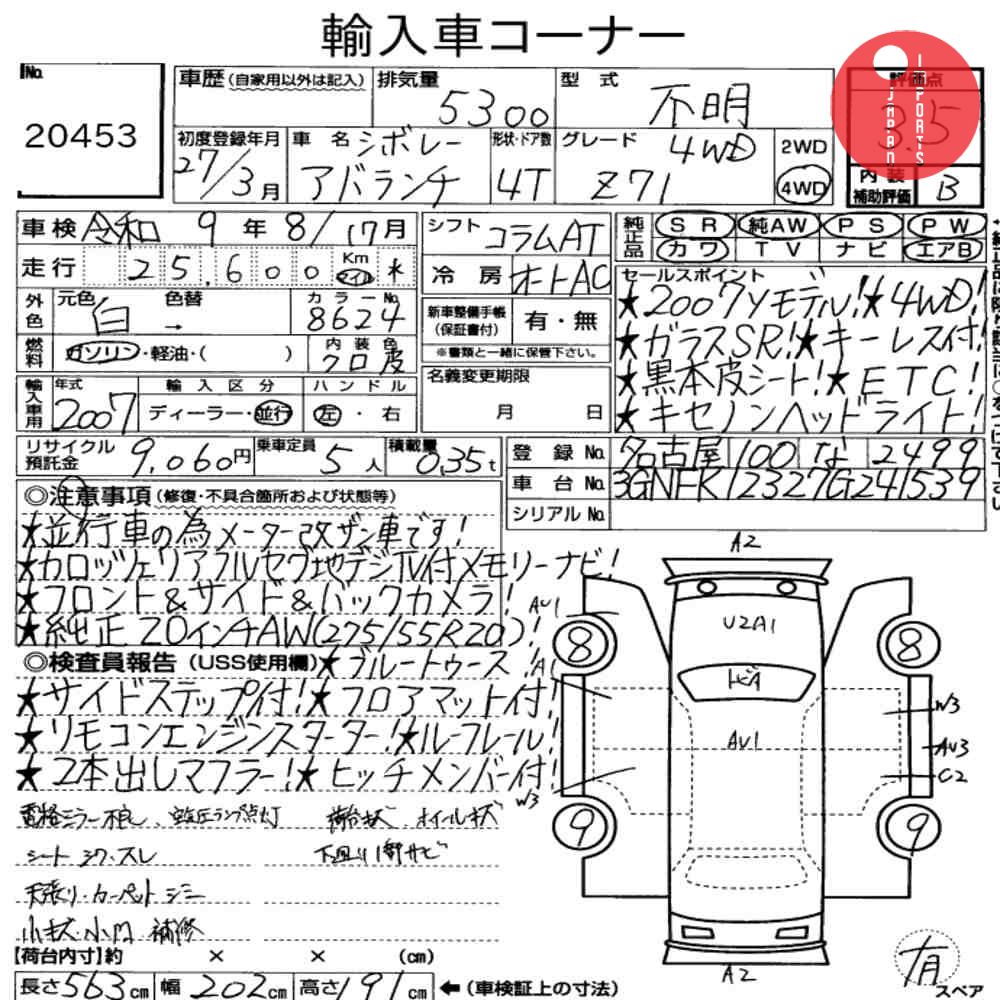 輸入車コーナー
No.
20453
車歴(自家用以外は記入)
排気量
5300
型 式
不明
評価点
3.5
JAPAN
IMPORTS
初度登録年月
27/3月
車 名
シボレー
アバランチ
形状・ドア数
4T
グレード
4WD
Z71
2WD
4WD
内 装
補助評価
B
車検 令和 9 年 8/17月
走行 25,600 Km マイル *
外色
元色 白 →
色替
カラーNo.
8624
燃料
ガソリン・軽油・( )
内装色
クロ皮
輸入車用
年式
2007
輸入区分
ディーラー・並行
ハンドル
左・右
リサイクル
預託金
9,060円
乗車定員
5人
積載量
0.35t
シフト
コラムAT
冷 房
オートAC
新車整備手帳
(保証書付)
有・無
※書類と一緒に保管下さい。
名義変更期限
月 日
純正品
SR 純AW PS PW
カワ TV ナビ エアB
セールスポイント
★2007yモデル!★4WD!
★ガラスSR!★キーレス付!
★黒本皮シート!★ETC!
★キセノンヘッドライト!
登 録 No. 名古屋 100 な 2499
車 台 No. 3GNFK12327G241539
シリアルNo.
◎注意事項(修復・不具合箇所および状態等)
★並行車の為メーター改ザン車です!
★カロッツェリアフルセグ地デジTV付メモリーナビ!
★フロント&サイド&バックカメラ!
★純正20インチAW(275/55R20)!
◎検査員報告(USS使用欄)★ブルートゥース!
★サイドステップ付!★フロアマット付!
★リモコンエンジンスターター!★ルーフレール!
★2本出しマフラー!★ヒッチメンバー付!
電格ミラー不良、空気圧ランプ点灯
荷台キズ ホイールキズ
シート シワ・スレ
下廻り1部サビ
天張り・カーペット シミ
小キズ・小凹 補修
【荷台内寸】約 × × (cm)
長さ563cm
幅 202cm
高さ191cm
←(車検証上の寸法)
A2
AU1
8
8
U2A1
A1
トビA
W3
AU1
AU3
C2
W3
9
9
A2
有
スペア